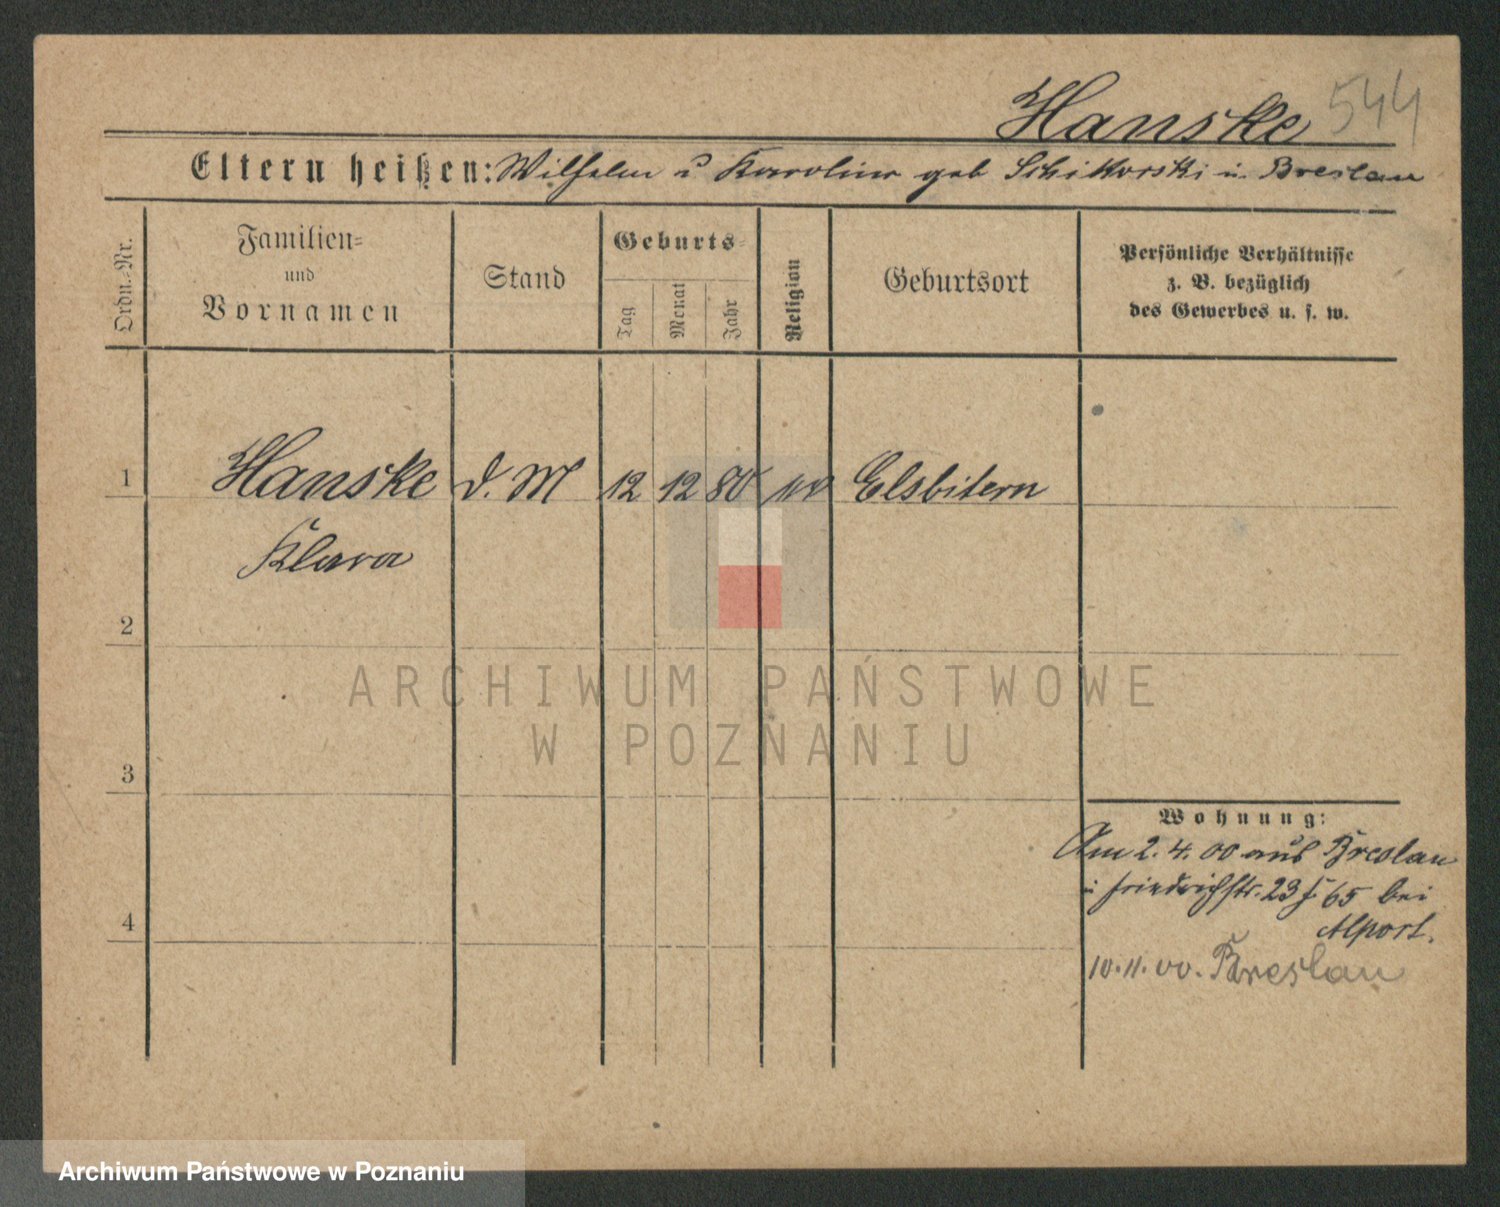 Hanske 544
Eltern heißen: Wilhelm u Karoline geb Schikorski in Breslau
Ordn.-Nr.
Familien=
und
Vornamen
Stand
Geburts=
Tag
Monat
Jahr
Religion
Geburtsort
Persönliche Verhältnisse
z. B. bezüglich
des Gewerbes u. s. w.
1 Hanske d. M 12 12 80
Klara
2
3
4
ARCHIWUM PAŃSTWOWE
W POZNANIU
Wohnung:
Am 2. 4. 00 aus Breslau
Friedrichstr. 23 65 bei
Alport.
10. 11. 00. Breslau
Archiwum Państwowe w Poznaniu